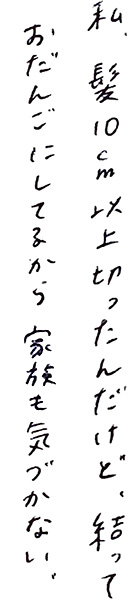 私、髪10cm以上切ったんだけど、結って
おだんごにしてるから家族も気づかない、